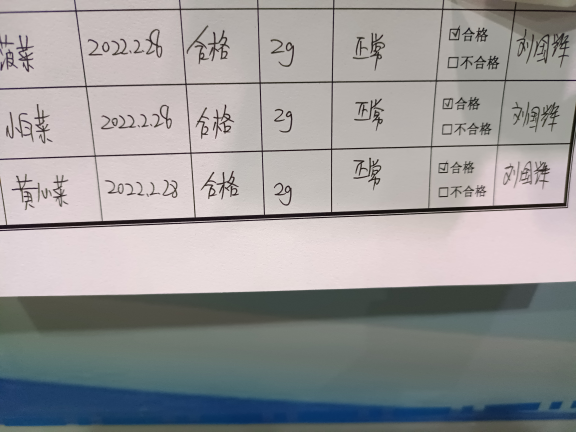 菠菜 2022.2.28 合格 2g 正常 ☑合格 □不合格 刘国辉
小白菜 2022.2.28 合格 2g 正常 ☑合格 □不合格 刘国辉
黄心菜 2022.2.28 合格 2g 正常 ☑合格 □不合格 刘国辉